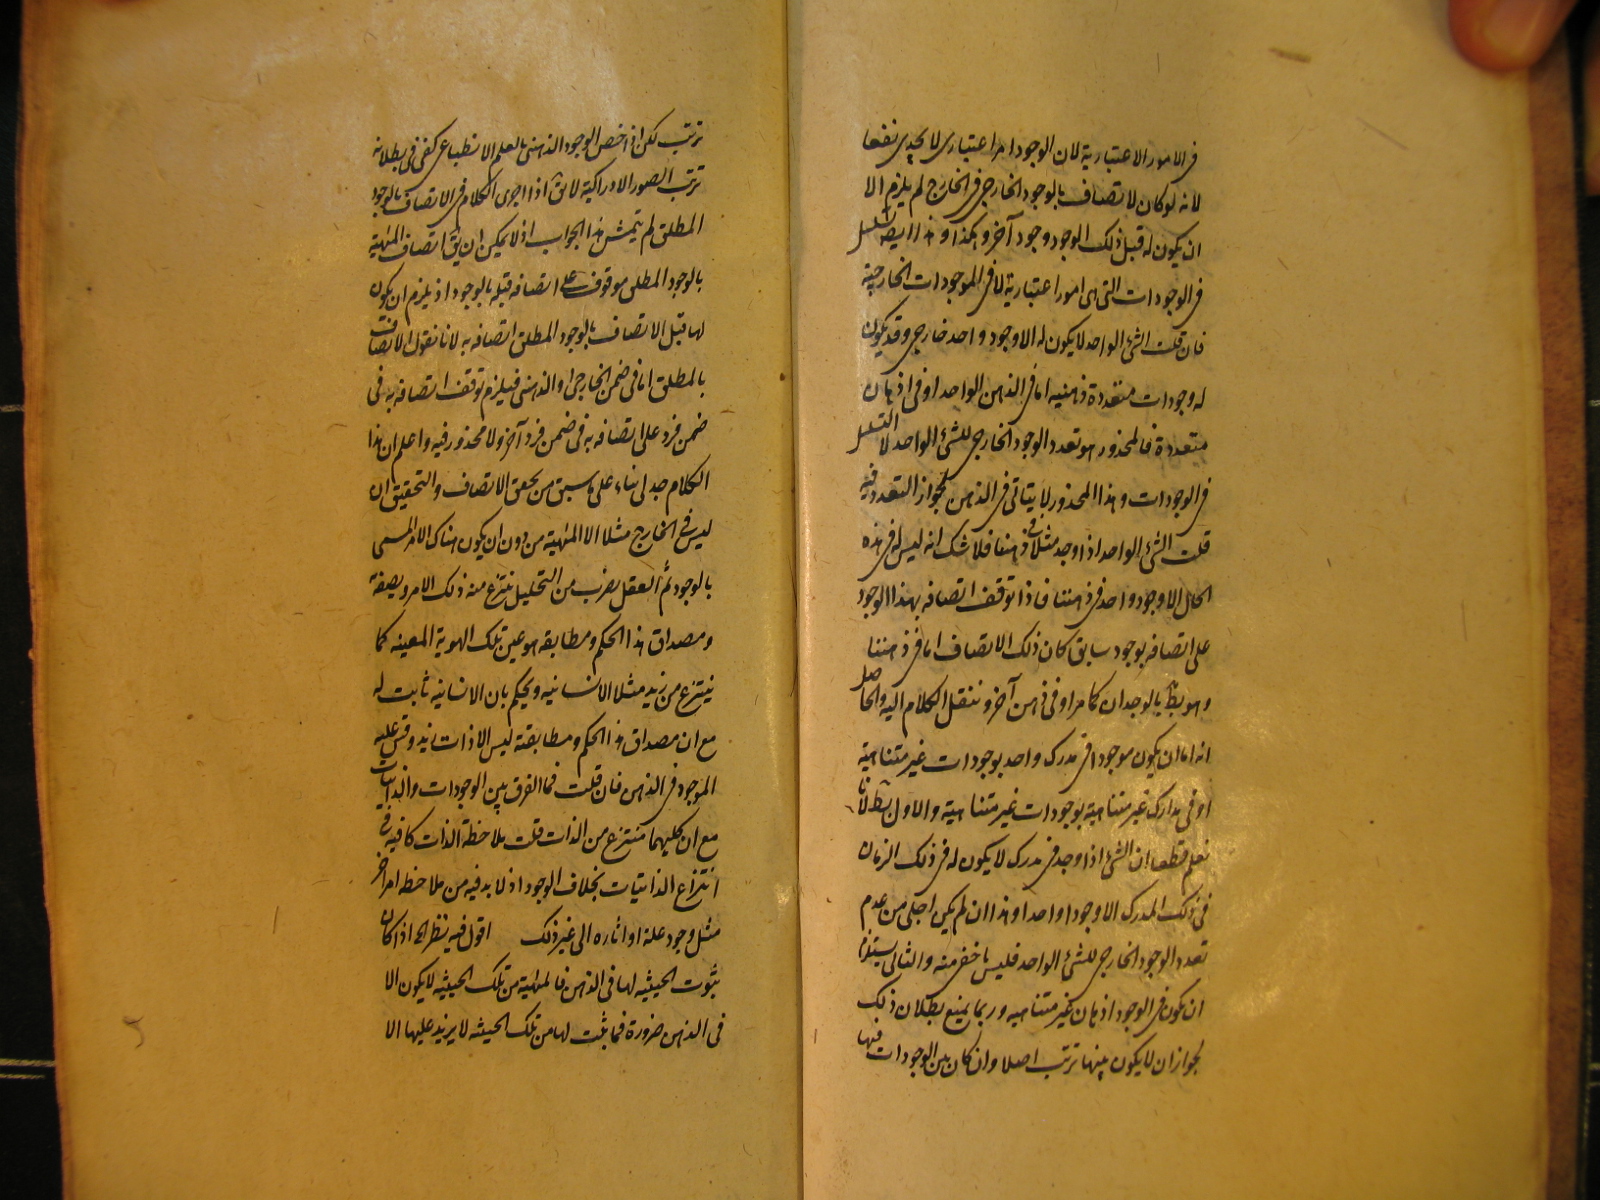 فى الامور الاعتبارية لان الوجود امر اعتبارى لا يجدى نفعا
لانه لو كان الاتصاف بالوجود الخارجى فى الخارج لم يلزم الا
ان يكون له قبل ذلك الوجود وجود آخر وهكذا وهذا ايضا تسلسل
فى الوجودات التى هى امور اعتبارية لا فى الموجودات الخارجية
فان قلت الشئ الواحد لا يكون له الا وجود واحد خارجى وقد يكون
له وجودات متعددة ذهنيه اما فى الذهن الواحد او فى اذهان
متعددة فالمحذور هو تعدد الوجود الخارجى للشئ الواحد لا التسلسل
فى الوجودات وهذا المحذور لا يتاتى فى الذهن لجواز التعدد فيه
قلت الشئ الواحد اذا وجد مثلا فى ذهننا فلا شك انه ليس له فى هذه
الحال الا وجود واحد فى ذهننا فاذا توقف اتصافه بهذا الوجود
على اتصافه بوجود سابق كان ذلك الاتصاف اما فى ذهننا
وهو بط بالوجدان كما مر او فى ذهن آخر وننقل الكلام اليه والحاصل
انه اما ان يكون موجودا فى مدرك واحد بوجودات غير متناهية
او فى مدارك غير متناهية بوجودات غير متناهية والاول بط لانا
نعلم قطعا ان الشئ اذا وجد فى مدرك لا يكون له فى ذلك الزمان
فى ذلك المدرك الا وجودا واحدا وهذا ان لم يكن اجلى من عدم
تعدد الوجود الخارجى للشئ الواحد فليس باخفى منه والثانى يستلزم
ان يكون فى الوجود اذهان غير متناهيه وربما يمنع بطلان ذلك
لجواز ان لا يكون بينها ترتب اصلا وان كان بين الوجودات فيها
ترتب لكن اذا خص الوجود الذهنى بالعلم الانطباعى كفى فى بطلانه
ترتب الصور الادراكية لا يق اذا اجرى الكلام فى الاتصاف بالوجود
المطلق لم يتمش هذا الجواب اذ لا يمكن ان يق اتصاف المهية
بالوجود المطلق موقوف على اتصافه قبله بالوجود اذ يلزم ان يكون
لها قبل الاتصاف بالوجود المطلق اتصافه به لانا نقول الاتصاف
بالمطلق اما فى ضمن الخارجى او الذهنى فيلزم توقف اتصافه به فى
ضمن فرد على اتصافه به فى ضمن فرد آخر ولا محذور فيه واعلم ان هذا
الكلام جدلى بناء على ما سبق من تحقق الاتصاف والتحقيق ان
ليس فى الخارج مثلا الا المهية من دون ان يكون هناك الامر المسمى
بالوجود ثم العقل بضرب من التحليل ينتزع منه ذلك الامر ويصفه
ومصداق هذا الحكم ومطابقه هو عين تلك الهوية المعينه كما
ينتزع من زيد مثلا الانسانيه ويحكم بان الانسانيه ثابت له
مع ان مصداق هذا الحكم ومطابقته ليس الا ذات زيد وقس عليه
الموجود فى الذهن فان قلت فما الفرق بين الوجودات والذاتيات
مع ان كليهما منتزع من الذات قلت ملاحظة الذات كافيه فى
انتزاع الذاتيات بخلاف الوجود اذ لا بد فيه من ملاحظه امر آخر
مثل وجود علة او اثاره الى غير ذلك اقول فيه نظر اذا كان
ثبوت الحيثيه لها فى الذهن فالمهية من تلك الحيثيه لا يكون الا
فى الذهن ضرورة فما ثبت لها من تلك الحيثه لا يزيد عليها الا